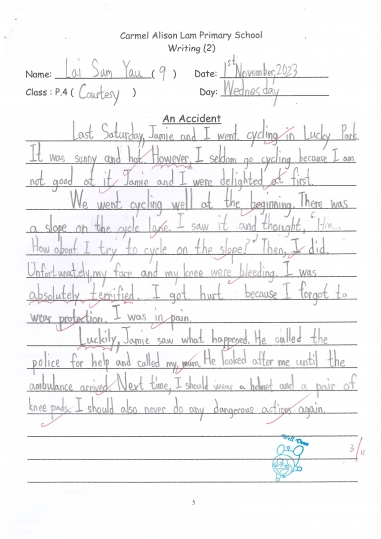 Carmel Alison Lam Primary School
Writing (2)
Name: Lai Sum Yau ( 9 ) Date: 1st November, 2023
Class : P.4 ( Courtesy ) Day: Wednesday
An Accident
Last Saturday, Jamie and I went cycling in Lucky Park.
It was sunny and hot. However, I seldom go cycling because I am
not good at it. Jamie and I were delighted at first.
We went cycling well at the beginning. There was
a slope on the cycle lane. I saw it and thought, "Hm...
How about I try to cycle on the slope?" Then, I did.
Unfortunately, my face and my knee were bleeding. I was
absolutely terrified. I got hurt because I forgot to
wear protection. I was in pain.
Luckily, Jamie saw what happened. He called the
police for help and called my mum. He looked after me until the
ambulance arrived. Next time, I should wear a helmet and a pair of
knee pads. I should also never do any dangerous action again.
Well Done
3/11
5